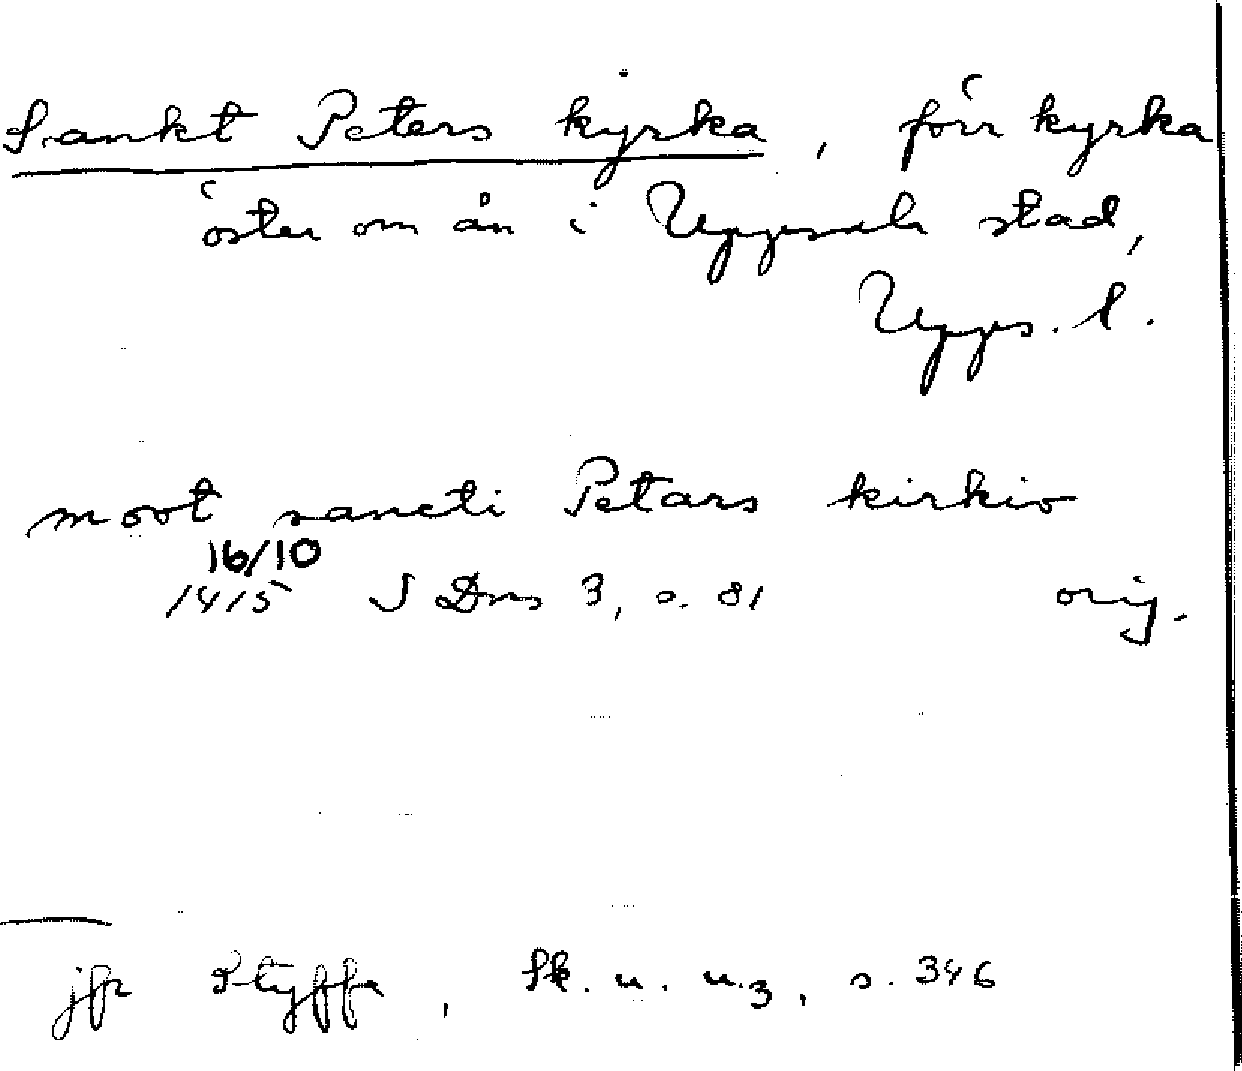 Sankt Peters kyrka, förr kyrka
öster om ån i Uppsala stad,
Upps. l.
moot sancti Petars kirkio
16/10
1415 SDns 3, s. 81 orig.
jfr Styffe, Sk. u. u.3, s. 346